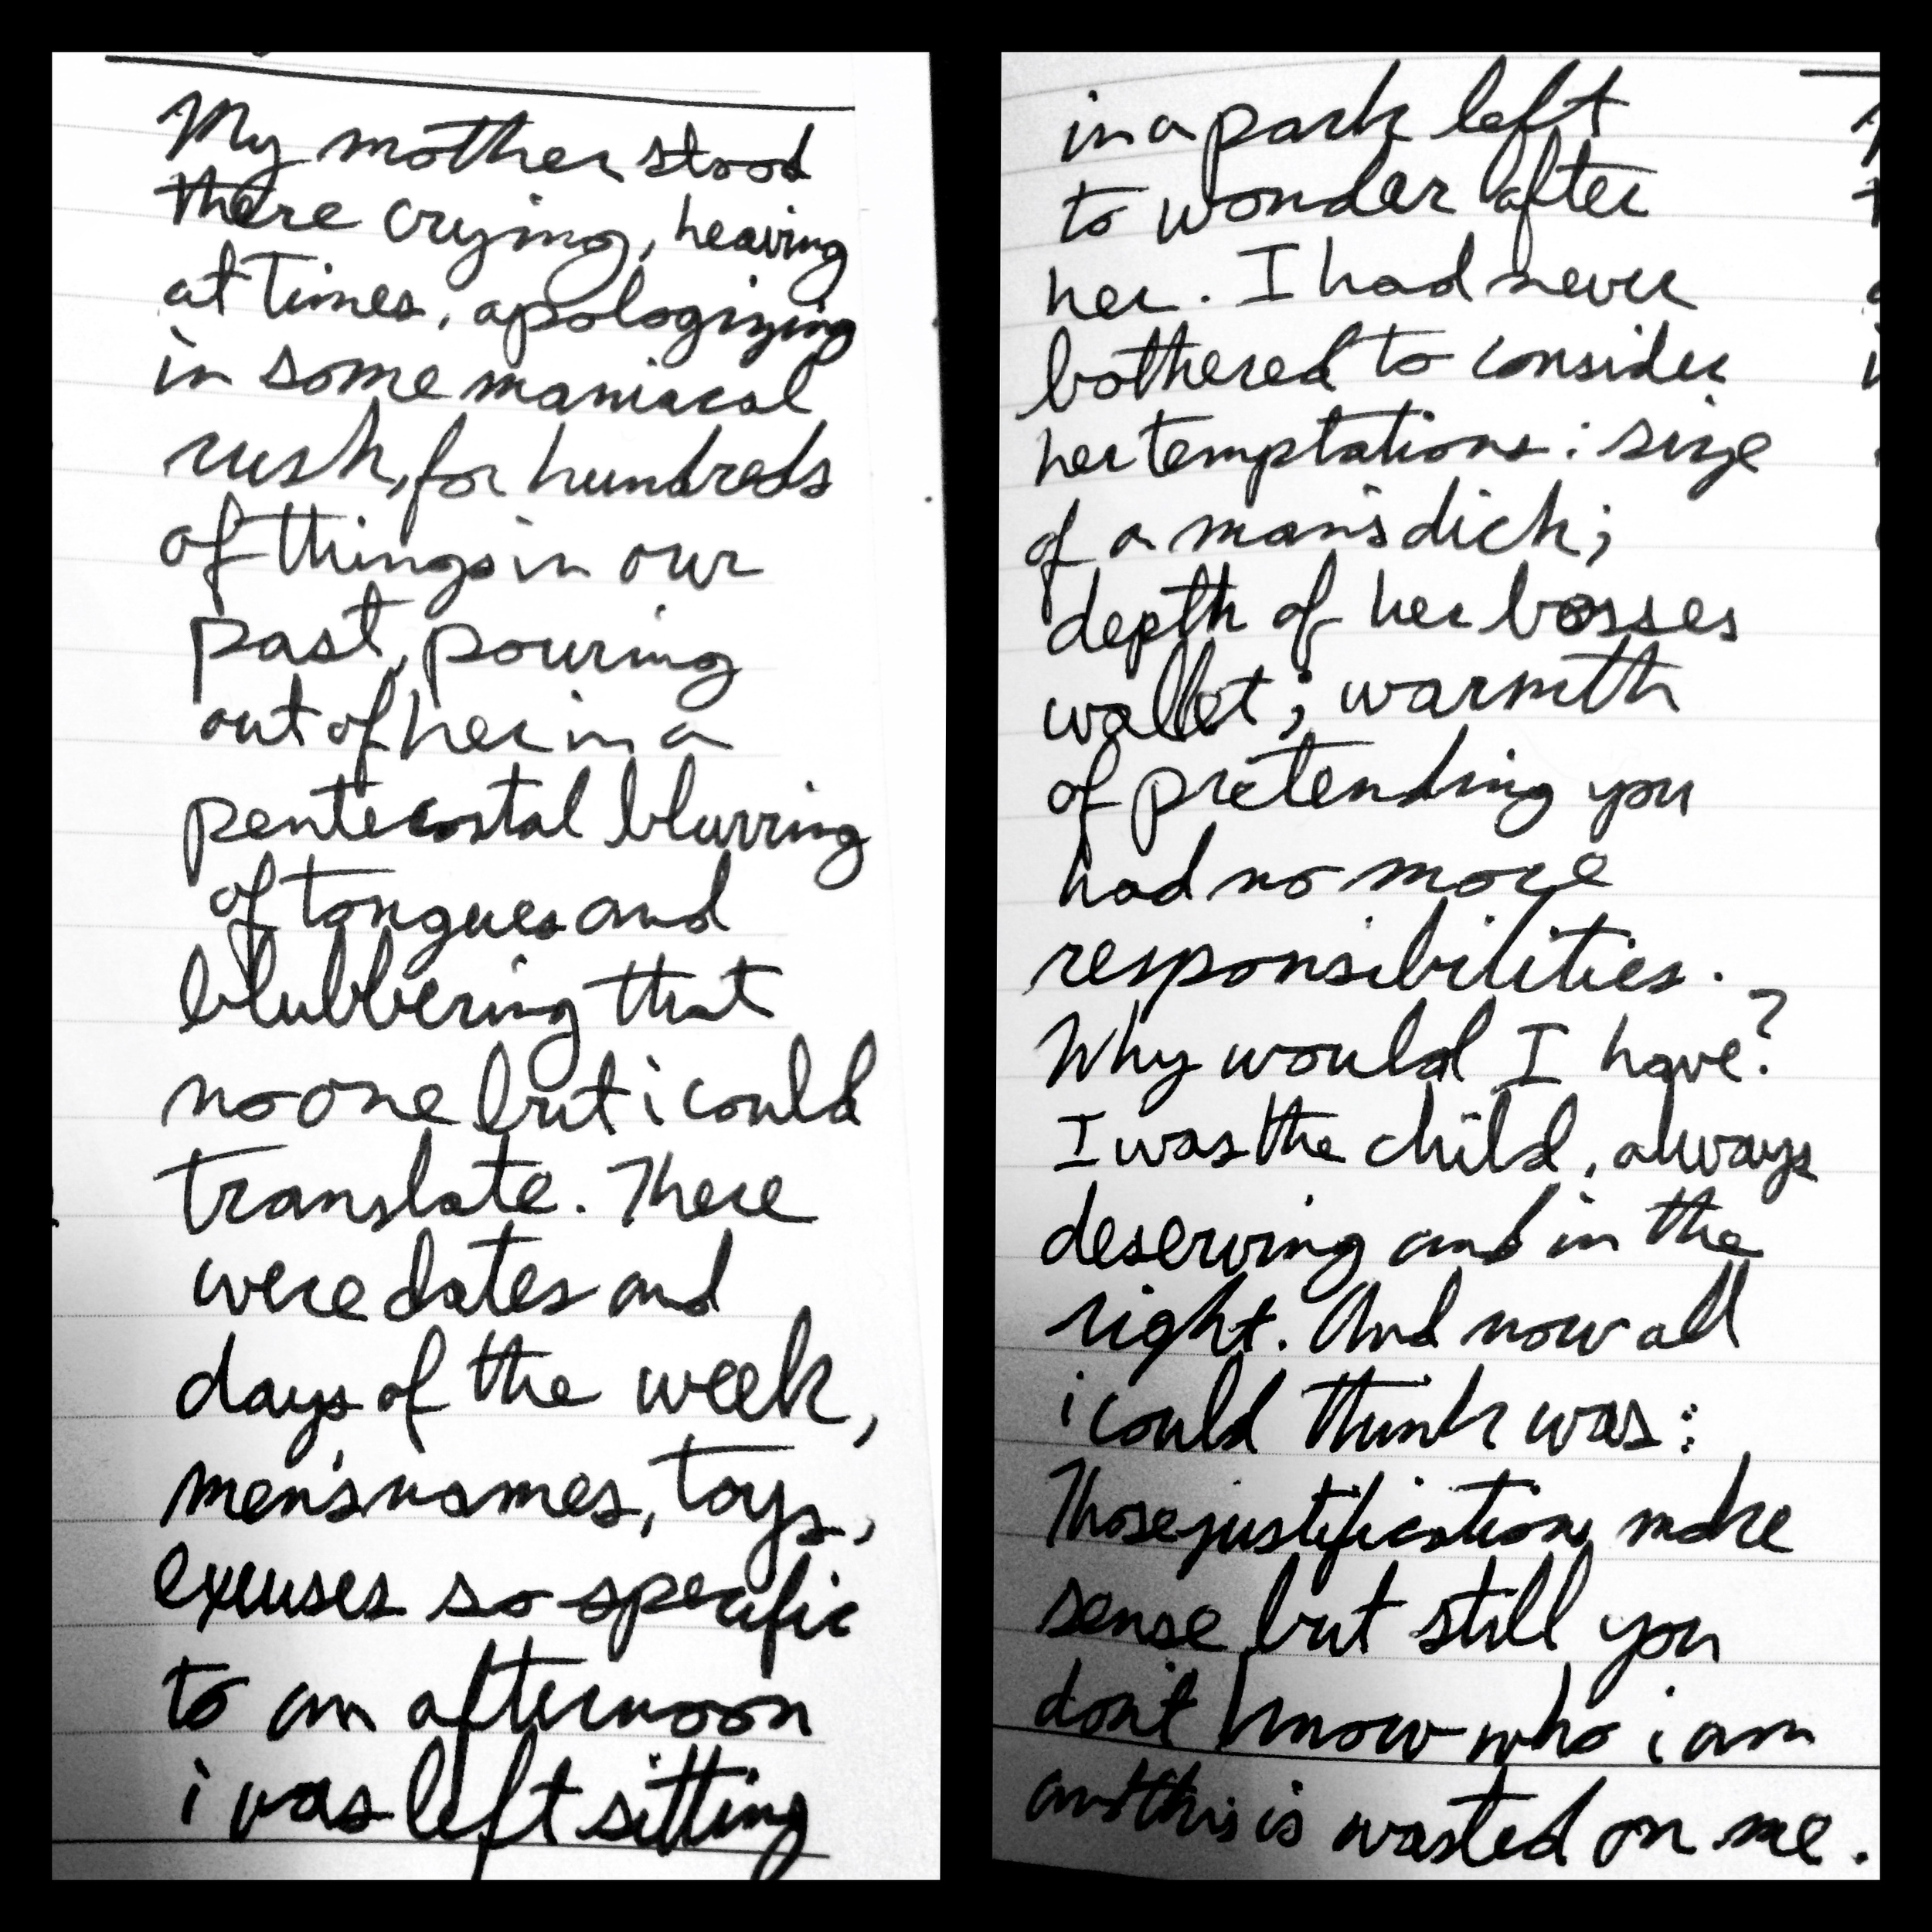 My mother stood
there crying, heaving
at times, apologizing
in some maniacal
rush, for hundreds
of things in our
past, pouring
out of her in a
pentecostal blurring
of tongues and
blubbering that
no one but i could
translate. There
were dates and
days of the week,
men's names, toys,
excuses so specific
to an afternoon
i was left sitting
in a park left
to wonder after
her. I had never
bothered to consider
her temptations: size
of a man's dick;
depth of her bosses
wallet; warmth
of pretending you
had no more
responsibilities.
Why would I have?
I was the child, always
deserving and in the
right. And now all
i could think was:
Those justifications make
sense but still you
don't know who i am
and this is wasted on me.